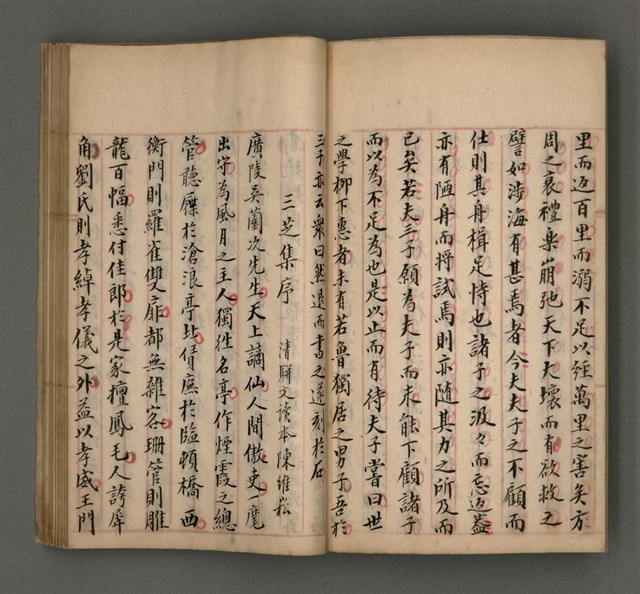 里而返百里而溺不足以經萬里之害矣方
周之衰禮樂崩弛天下大壞而有欲救之
譬如涉海有甚焉者今夫夫子之不顧而
仕則其舟楫足恃也諸子之汲々而忘返蓋
亦有陋舟而將試焉則亦隨其力之所及而
已矣若夫三子願為夫子而未能下顧諸子
而以為不足為也是以止而有待夫子嘗曰世
之學柳下惠者未有若魯獨居之男子吾於
三子亦云衆曰然退而書之遂刻於石
三芝集序 清駢文讀本陳維崧
廣陵吳薗次先生天上謫仙人間傲吏一麾
出守為風月之主人獨姓名亭作煙霞之總
管聽屧於滄浪亭北賃廡於臨頓橋西
衡門則羅雀雙扉都無雜客珊管則雕
龍百幅悉付佳郎於是家擅鳳毛人誇犀
角劉氏則孝綽孝儀之外益以孝威王門